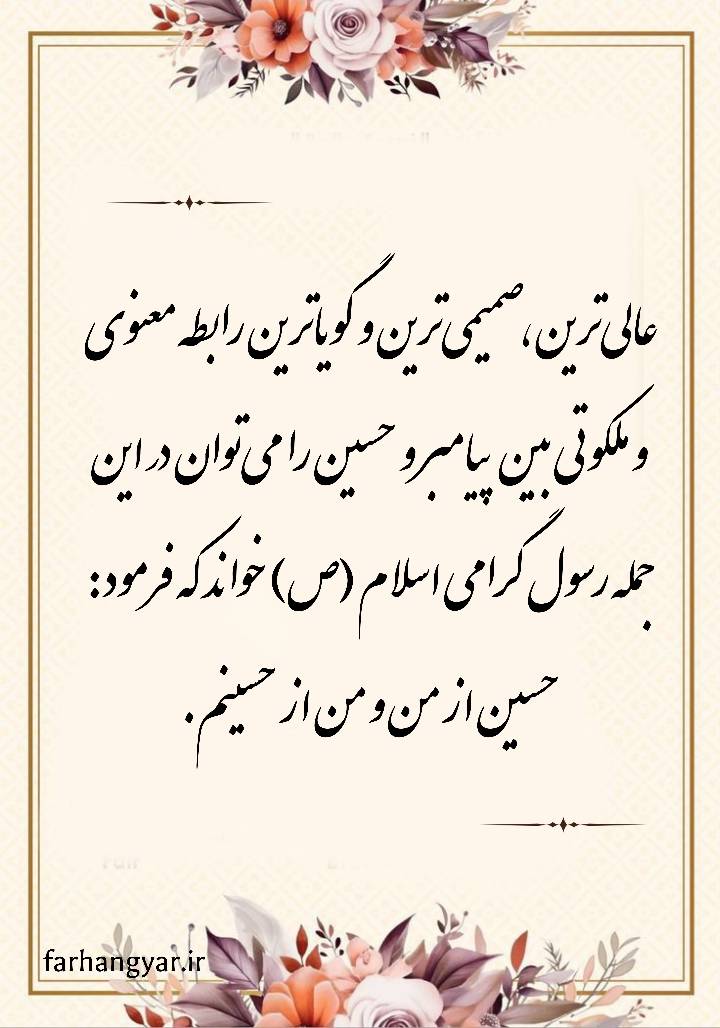 عالی‌ترین، صمیمی‌ترین و گویاترین رابطه معنوی
و ملکوتی بین پیامبر و حسین را می‌توان در این
جمله رسول گرامی اسلام (ص) خواند که فرمود:
حسین از من و من از حسینم.
farhangyar.ir